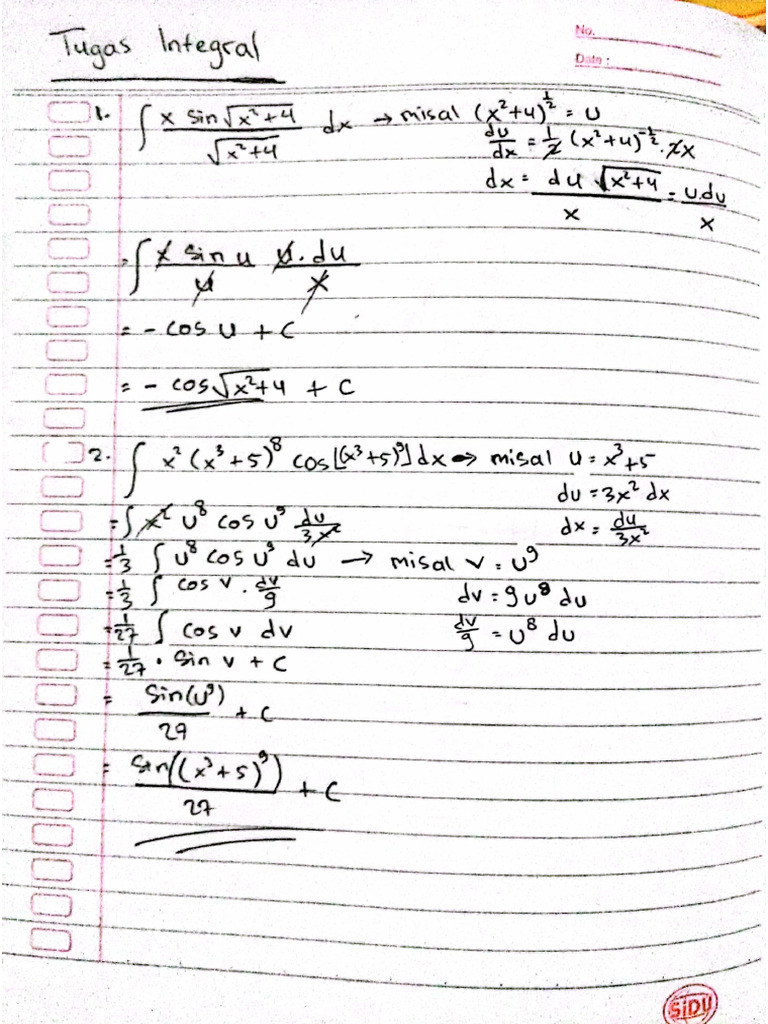 Tugas Integral
No.
Date :
1. ∫ x sin√(x²+4) / √(x²+4) dx → misal (x²+4)^½ = u
du/dx = 1/2 (x²+4)^-½ . 2x
dx = du √(x²+4) / x = u.du / x
= ∫ x sin u / u u.du / x
= - cos u + C
= - cos√(x²+4) + C
2. ∫ x² (x³+5)⁸ cos[(x³+5)⁹] dx → misal u = x³+5
du = 3x² dx
= ∫ x² u⁸ cos u⁹ du/3x² dx = du/3x²
= 1/3 ∫ u⁸ cos u⁹ du → misal v = u⁹
= 1/3 ∫ cos v . dv/9 dv = 9u⁸ du
= 1/27 ∫ cos v dv dv/9 = u⁸ du
= 1/27 . sin v + C
= Sin(u⁹) / 27 + C
= Sin((x³+5)⁹) / 27 + C
SiDU